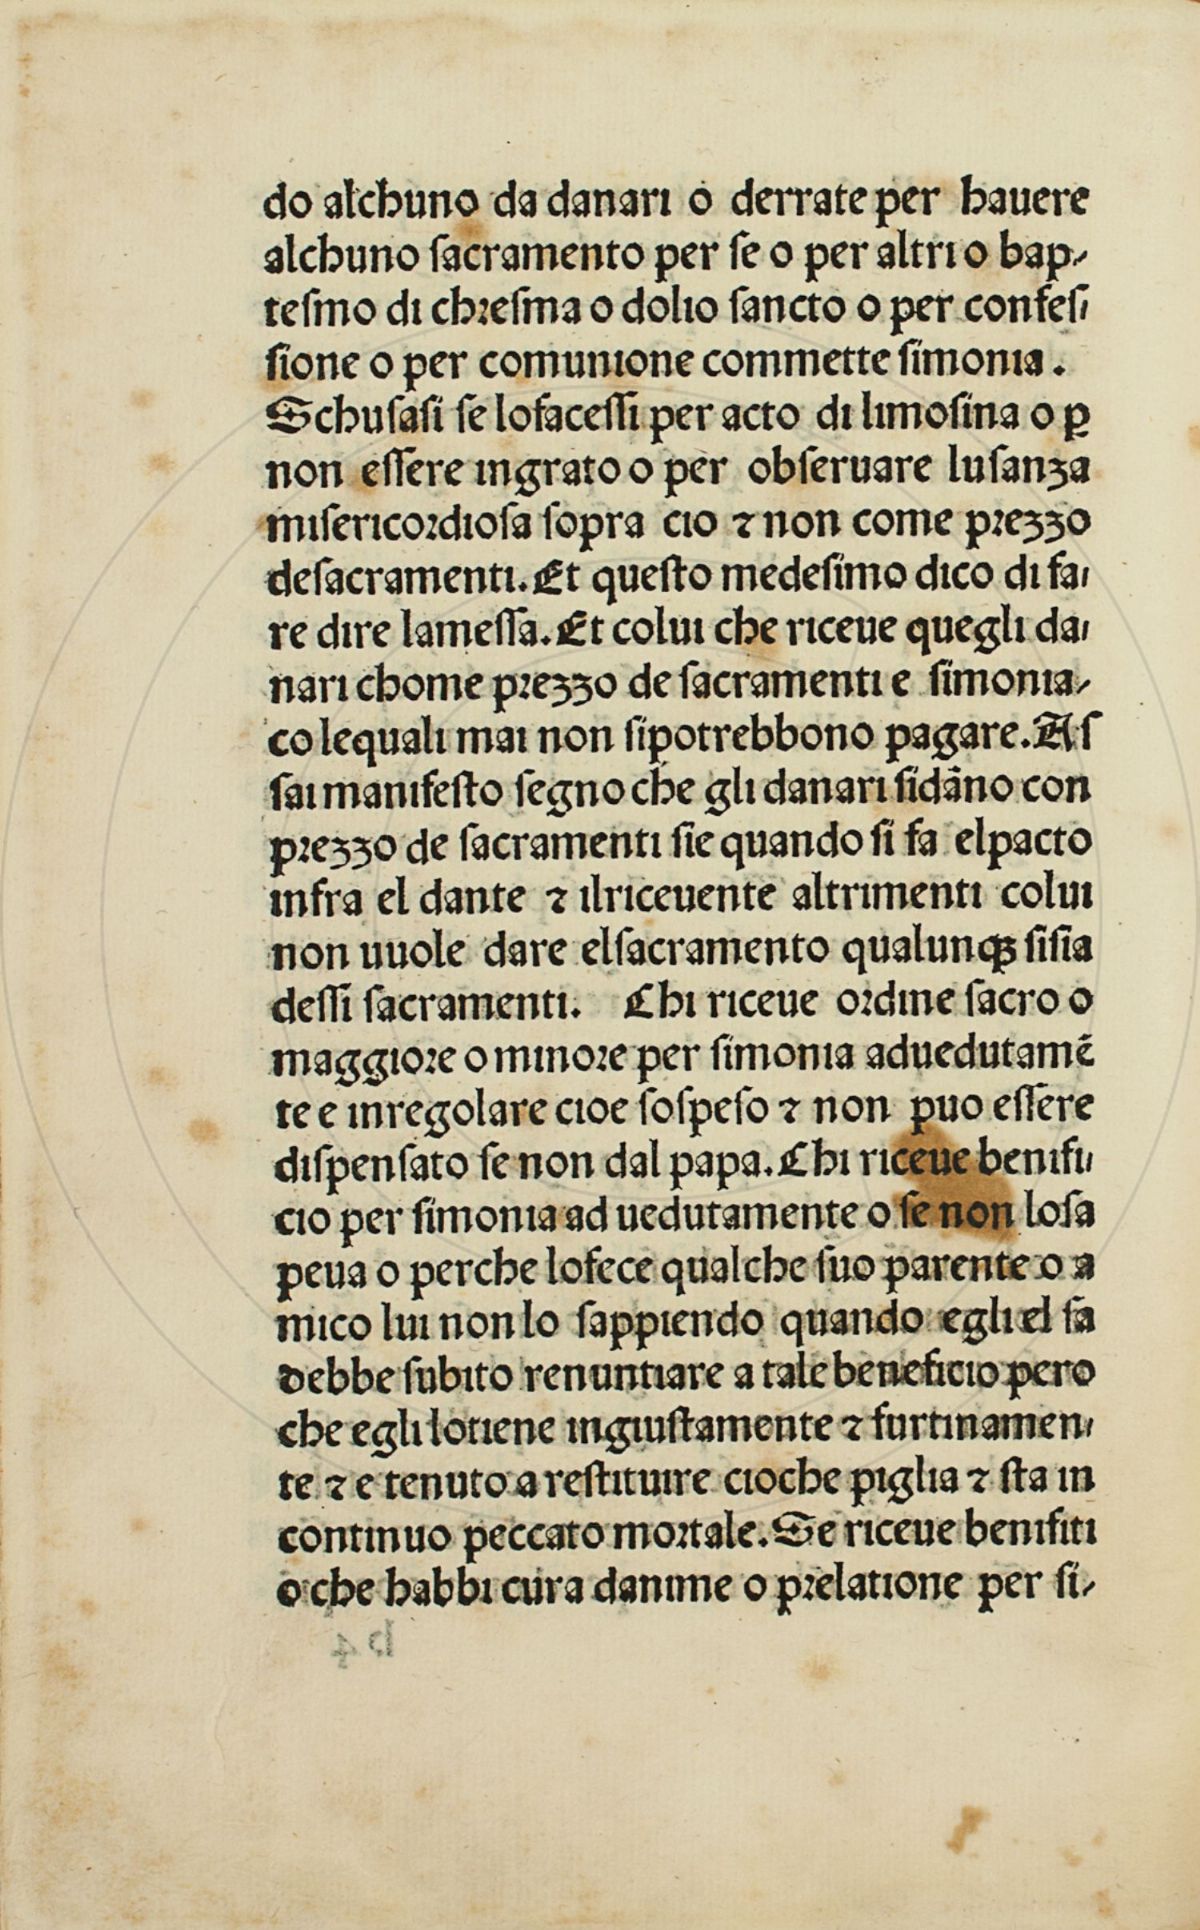 do alchuno da danari o derrate per hauere
alchuno ſacramento per ſe o per altri o bap⸗
teſmo di chꝛeſma o dolio ſancto o per confeſ⸗
ſione o per comunione commette ſimonia.
Schuſaſi ſe lofaceſſi per acto di limoſina o ꝑ
non eſſere ingrato o per obſeruare luſanza
miſericoꝛdioſa ſopra cio ⁊ non come pꝛezzo
deſacramenti. Et queſto medeſimo dico di fa⸗
re dire lameſſa. Et colui che riceue quegli da⸗
nari chome pꝛezzo de ſacramenti e ſimonia⸗
co lequali mai non ſipotrebbono pagare. Aſ
ſai manifeſto ſegno che gli danari ſidāno con
pꝛezzo de ſacramenti ſie quando ſi fa elpacto
infra el dante ⁊ ilriceuente altrimenti colui
non uuole dare elſacramento qualunqꝫ ſiſia
deſſi ſacramenti. Chi riceue oꝛdine ſacro o
maggioꝛe o minoꝛe per ſimonia aduedutamē
te e inregolare cioe ſoſpeſo ⁊ non puo eſſere
diſpenſato ſe non dal papa. Chi riceue benifi⸗
cio per ſimonia ad uedutamente o ſe non loſa
peua o perche lofece qualche ſuo parente o a
mico lui non lo ſappiendo quando egli el ſa
debbe ſubito renuntiare a tale beneficio pero
che egli lotiene ingiuſtamente ⁊ furtinamen⸗
te ⁊ e tenuto a reſtituire cioche piglia ⁊ ſta in
continuo peccato moꝛtale. Se riceue benifiti
o che habbi cura danime o pꝛelatione per ſi⸗
b 4